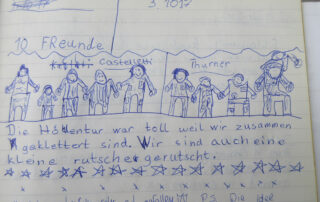 3. 2017
10 FReunde
Castelletti
Thurner
Die Hödentur war toll weil wir zusammen
geklettert sind. Wir sind auch eine
kleine rutscher gerutscht.
PS Die Idee